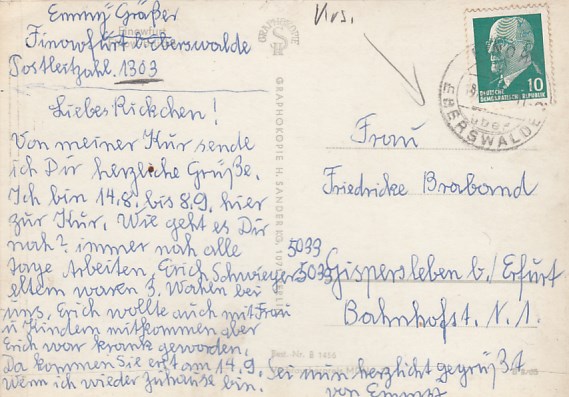 Emmy Gräßer
Finowfurt b. Eberswalde
Postleitzahl. 1303
Liebes Rickchen!
Von meiner Kur sende
ich Dir herzliche Grüße.
Ich bin 14.8. bis 8.9. hier
zur Kur. Wie geht es Dir
noch? immer noch alle
Tage Arbeiten. Erich Schwieger
eltern waren 3. Wochen bei
uns. Erich wollte auch mit Frau
u Kindern mitkommen aber
Erich war krank geworden.
Da kommen Sie erst am 14.9.
Wenn ich wieder zuhause bin.
Sei nun herzlicht gegrüßt
von Emmy
GRAPHOKOPIE
GRAPHOKOPIE H. SANDER KG,
Best.-Nr. B 1456
Krs.
DEUTSCHE
DEMOKRATISCHE REPUBLIK
10
EBERSWALDE
Frau
Friedricke Braband
5033
5033 Gispersleben b./Erfurt
Bahnhofst. N. 1.